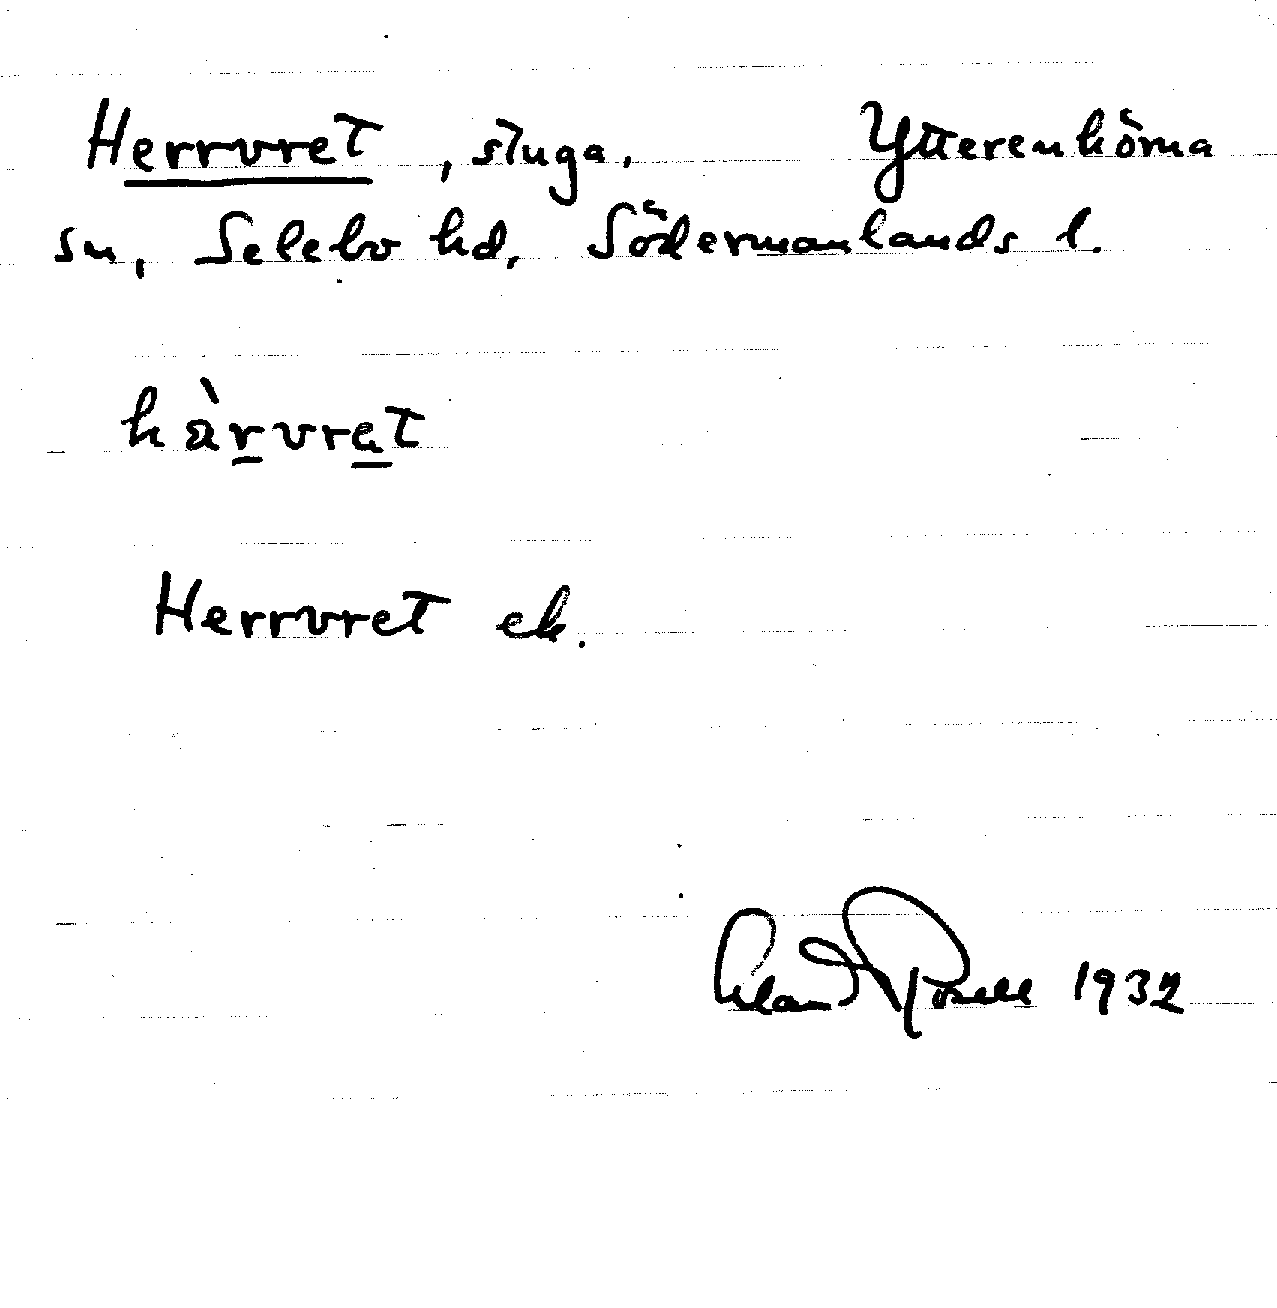 Herrvret, stuga, Ytterenhörna
sn, Selebo hd, Södermanlands l.
hàrvret
Herrvret ek.
1932